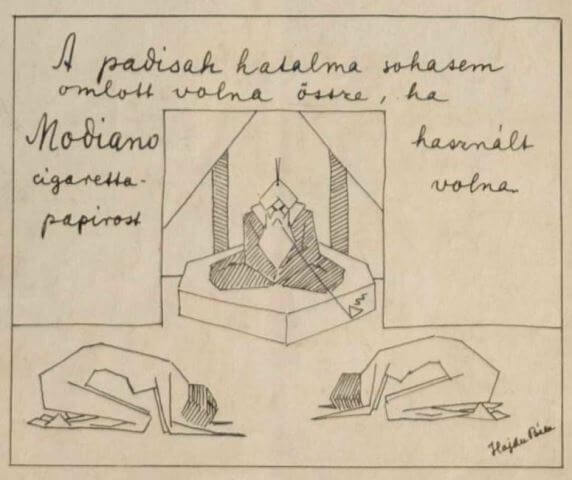 A padisah hatalma sohasem
omlott volna össze, ha
Modiano
cigaretta-
papirost
használt
volna.
Hajdu Béla